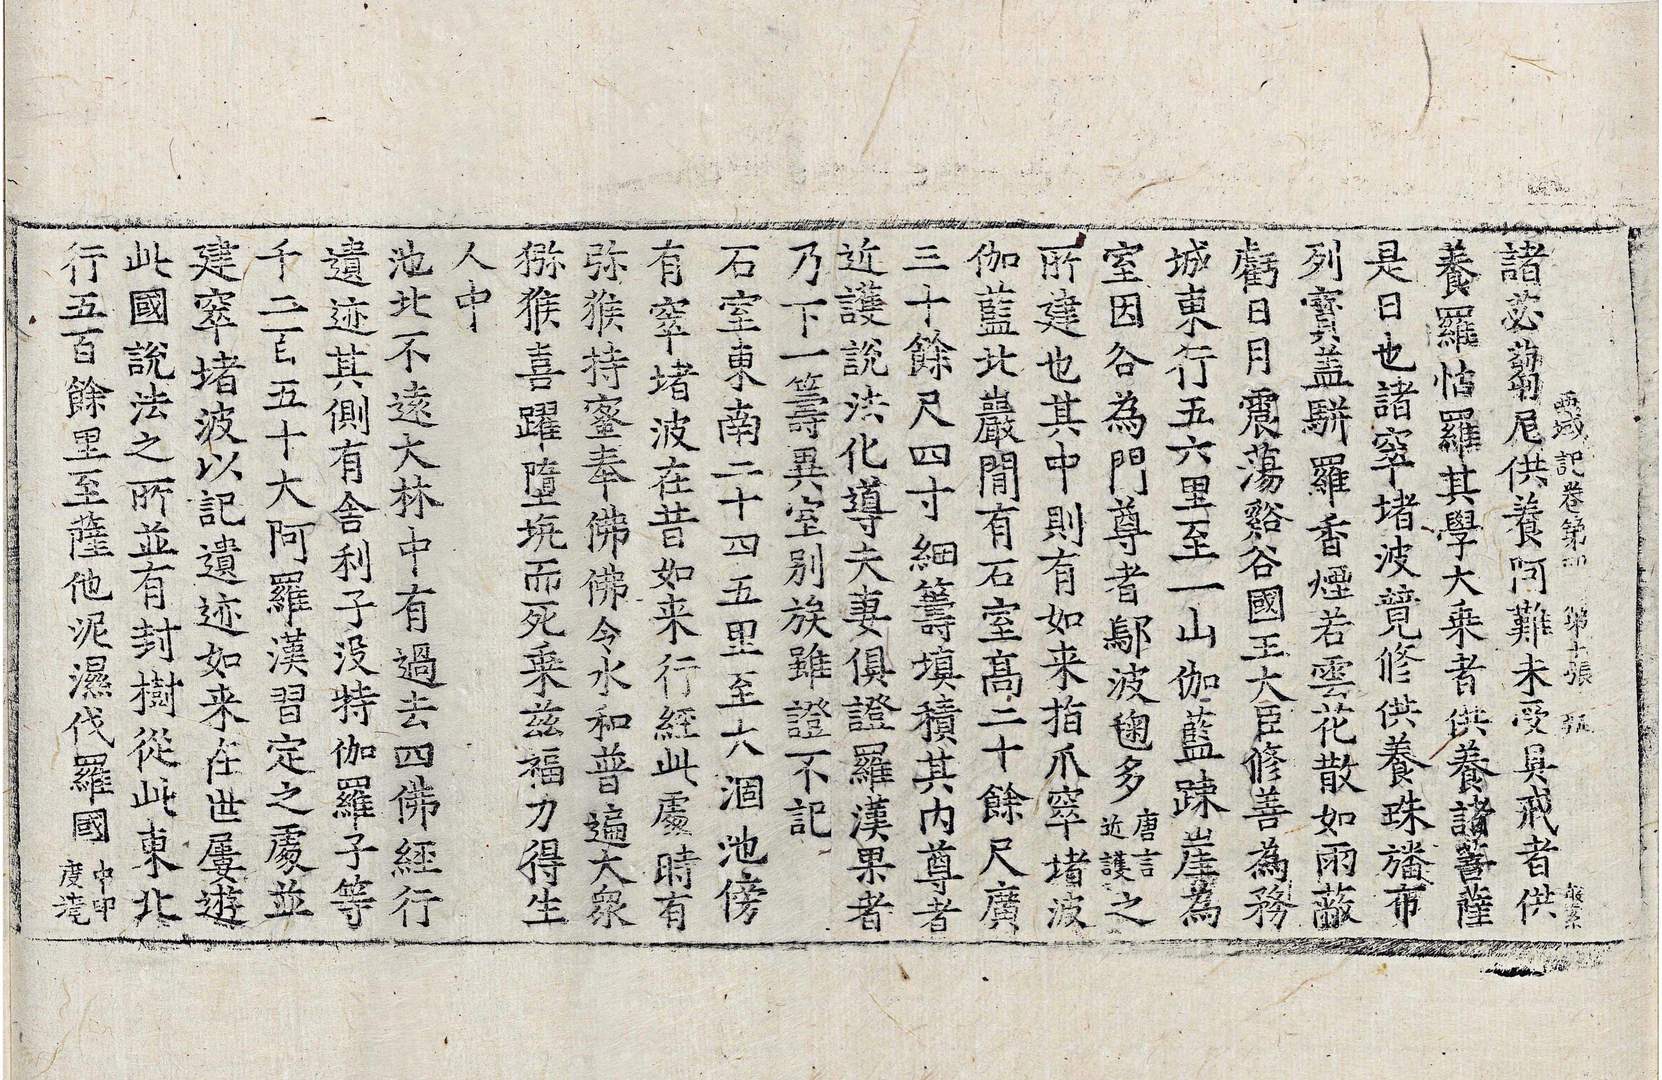 西域記卷第四 第十張
諸苾蒭尼供養阿難未受具戒者供
養羅怙羅其學大乘者供養諸菩薩
是日也諸窣堵波競修供養珠旛布
列寶盖駢羅香煙若雲花散如雨蔽
虧日月震蕩谿谷國王大臣修善為務
城東行五六里至一山伽藍踈崖為
室因谷為門尊者鄔波毱多唐言近護之
所建也其中則有如来指爪窣堵波
伽藍北巖間有石室高二十餘尺廣
三十餘尺四寸細籌填積其内尊者
近護說法化導夫妻俱證羅漢果者
乃下一籌異室别族雖證不記
石室東南二十四五里至大涸池傍
有窣堵波在昔如来行經此處時有
弥猴持蜜奉佛佛令水和普遍大衆
猕猴喜躍墮坑而死乘兹福力得生
人中
池北不遠大林中有過去四佛經行
遺迹其側有舍利子没特伽羅子等
千二百五十大阿羅漢習定之處並
建窣堵波以記遺迹如来在世屢遊
此國說法之所並有封樹從此東北
行五百餘里至薩他泥濕伐羅國中印度境